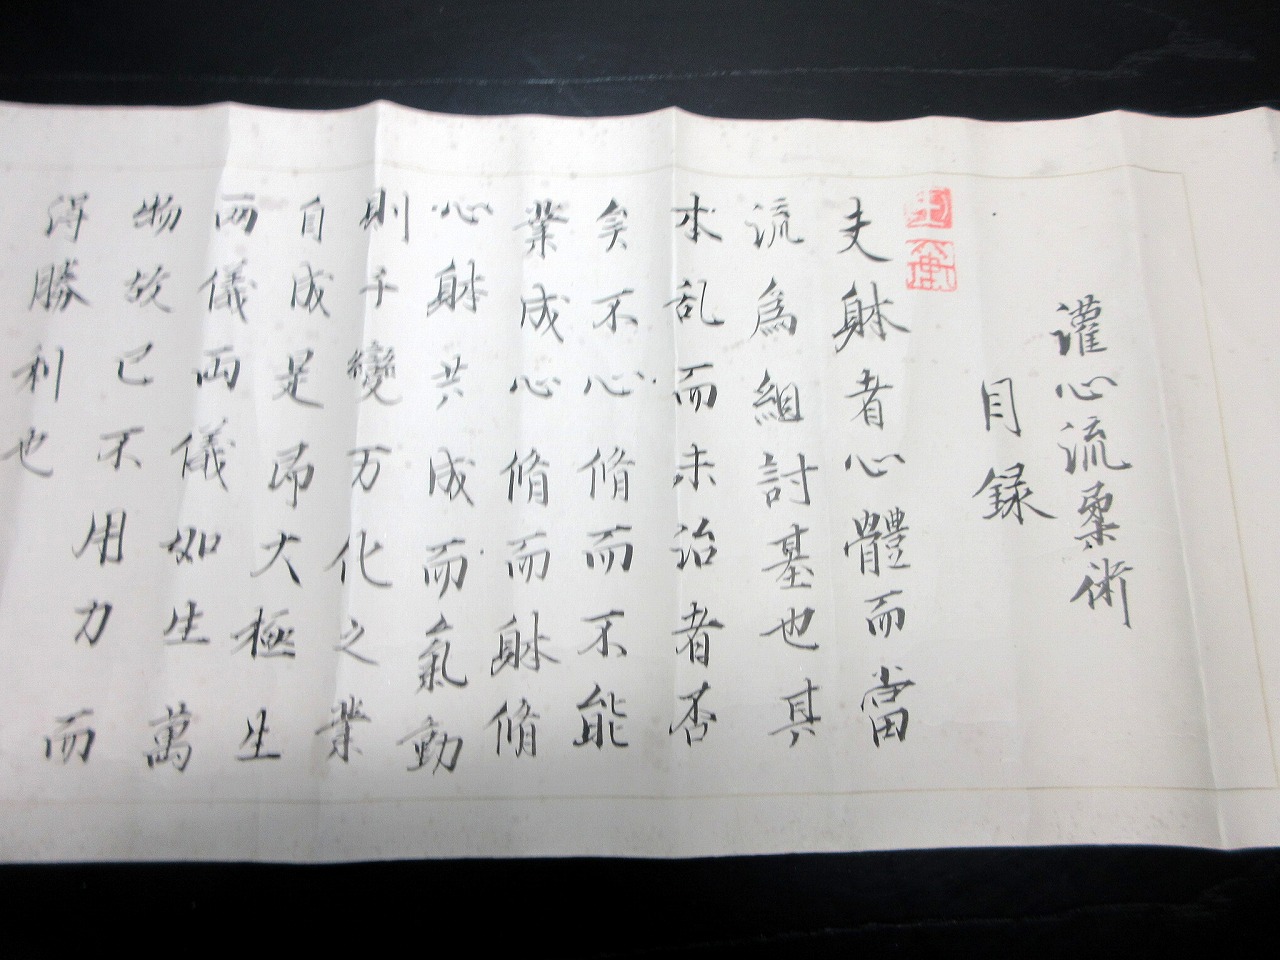 灌心流柔術
目録
夫躰者心體而當
流為組討基也其
本乱而未治者否
矣不心脩而不能
業成心脩而躰脩
心躰共成而氣動
則千變万化之業
自成是昂大極生
両儀両儀如生萬
物故已不用力而
淂勝利也